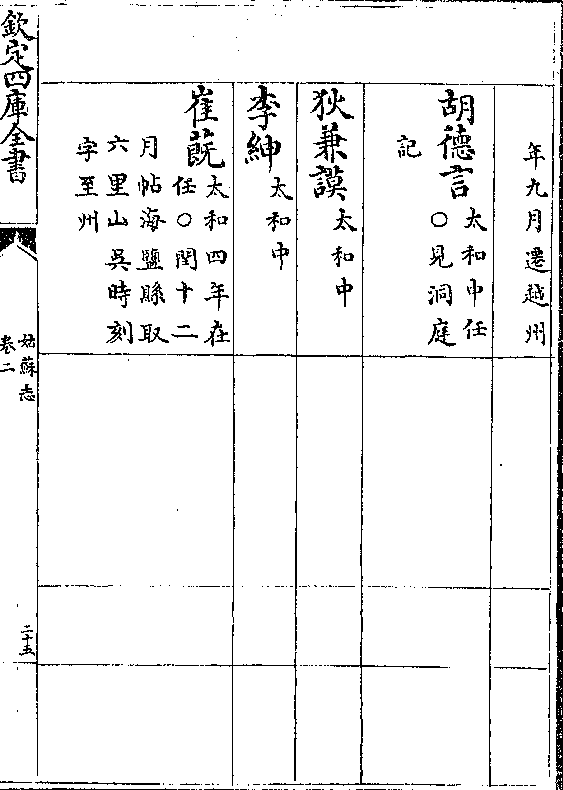 年九月遷越州
胡德言
太和中任
○見洞庭
記
狄兼謨
太和中
李紳
太和中
崔蔇
太和四年在
任○閏十二
月帖海鹽縣取
六里山吳時刻
字至州
欽定四庫全書
姑蘇志
卷二
二十五